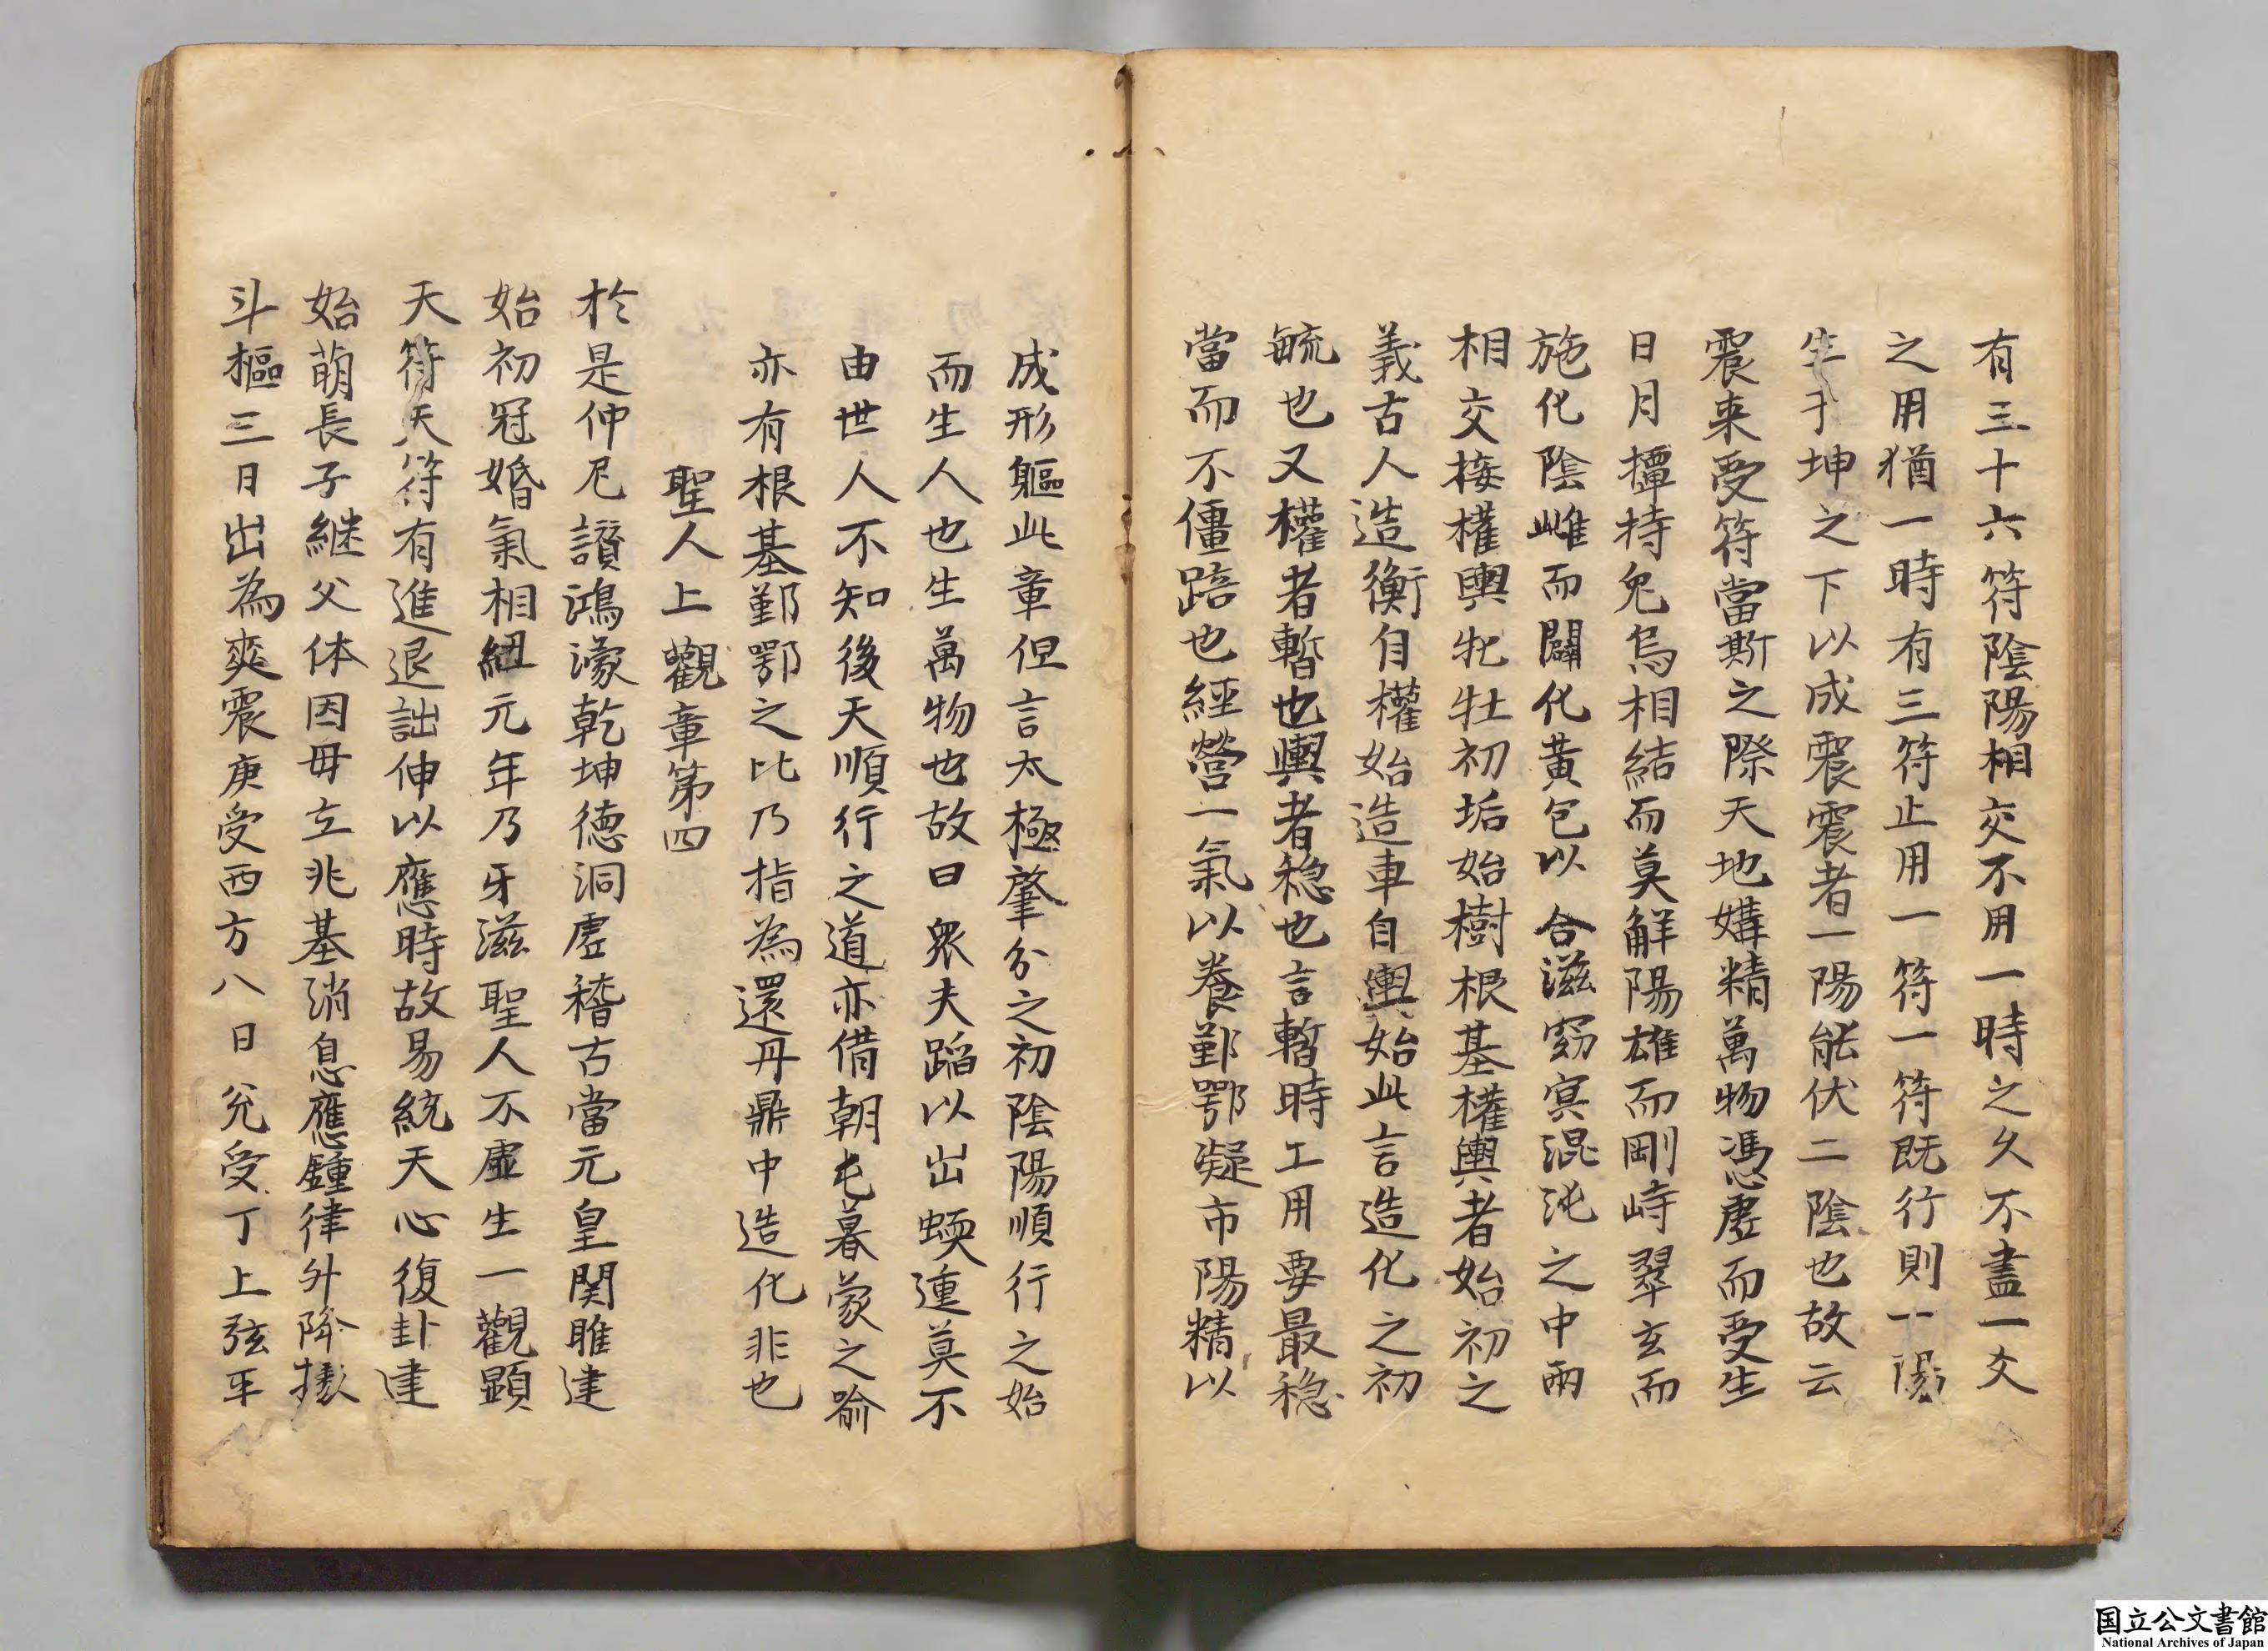 有三十六符陰陽相交不用一時之久不盡一爻
之用猶一時有三符止用一符一符既行則一陽
生于坤之下以成震震者一陽能伏二陰也故云
震来受符當斯之際天地媾精萬物憑虛而受生
日月撢持兔烏相結而莫解陽雄而剛峙翠玄而
施化陰雌而闢化黃包以合滋窈冥混沌之中兩
相交接權輿牝牡初垢始樹根基權輿者始初之
義古人造衡自權始造車自輿始此言造化之初
毓也又權者暫也輿者稳也言暫時工用要最稳
當而不僵踣也經營一氣以養鄞鄂凝市陽精以
成形軀此章但言太極肇分之初陰陽順行之始
而生人也生萬物也故曰衆夫蹈以出蝡蓮莫不
由世人不知後天順行之道亦借朝屯暮蒙之喻
亦有根基鄞鄂之比乃指為還丹鼎中造化非也
聖人上觀章第四
於是仲尼讃鴻濛乾坤德洞虛稽古當元皇関雎建
始初冠婚氣相紐元年乃牙滋聖人不虛生一觀顕
天符天符有進退詘伸以應時故易統天心復卦建
始萌長子継父体因母立兆基消息應鍾律升降㨿
斗樞三日出為爽震庚受西方八日兊受丁上弦平
国立公文書館
National Archives of Japan